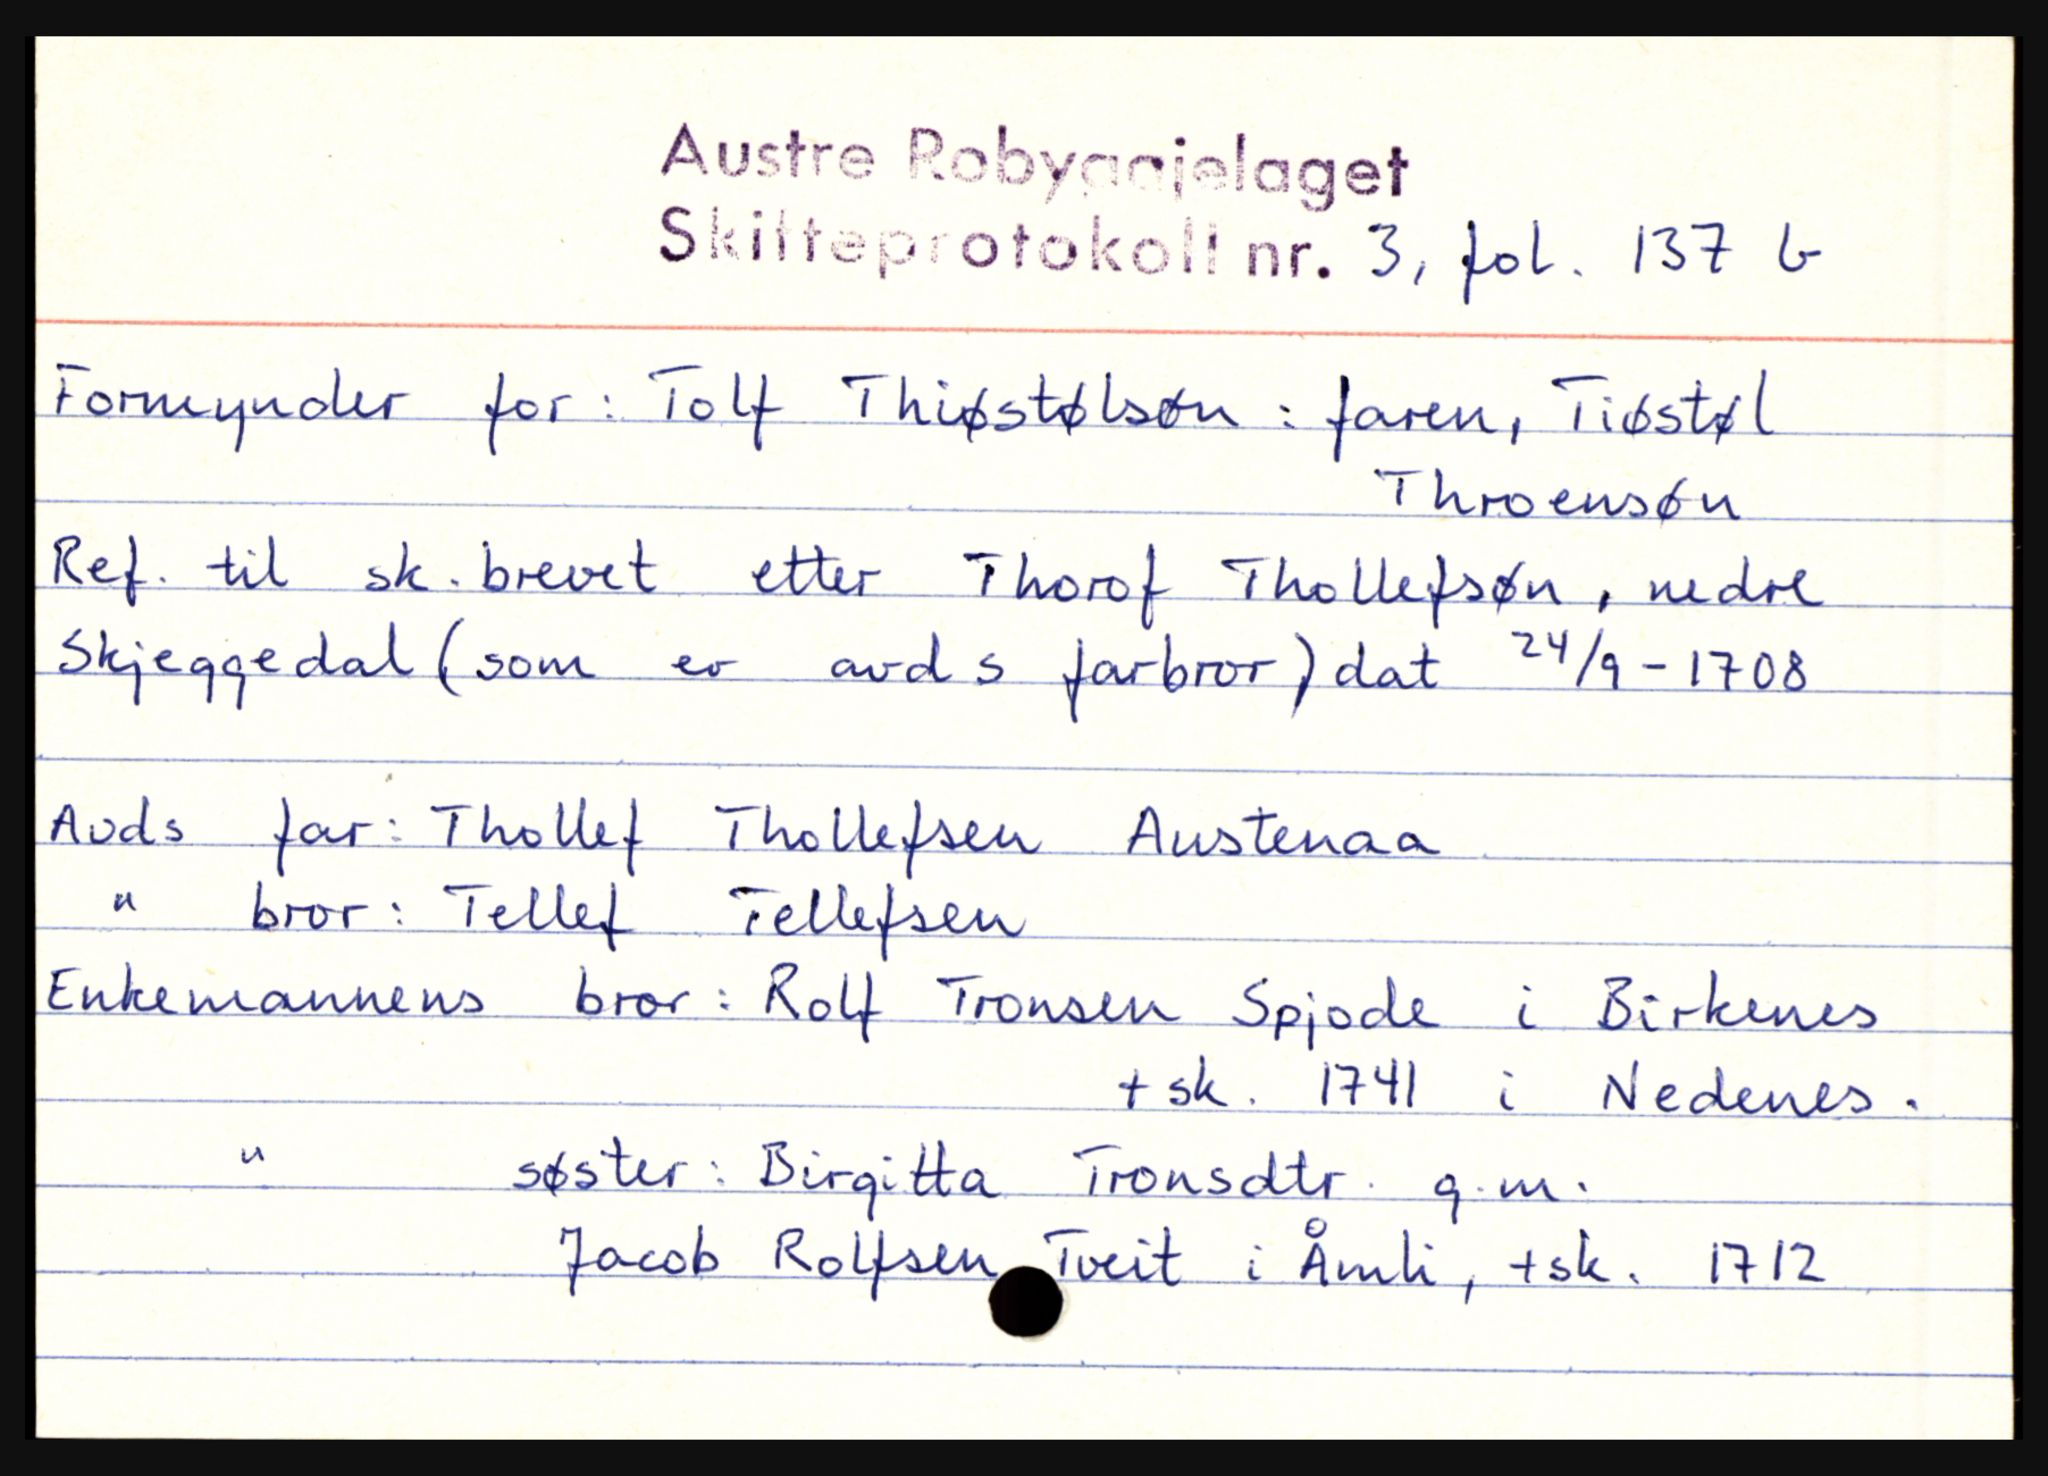 Austre Robyggjelaget
Skifteprotokoll nr. 3, fol. 137 b
Formynder for: Tolf Thiøstølsøn : faren, Tiøstøl
Throensøn
Ref. til sk. brevet etter Thorof Thollefsøn, nedre
Skjeggedal (som er avds farbror) dat 24/9 - 1708
Avds far: Thollef Thollefsen Austenaa
" bror: Tellef Tellefsen
Enkemannens bror: Rolf Tronsen Spjode i Birkenes
+ sk. 1741 i Nedenes.
" søster: Birgitta Tronsdtr. g.m.
Jacob Rolfsen Tveit i Åmli, + sk. 1712